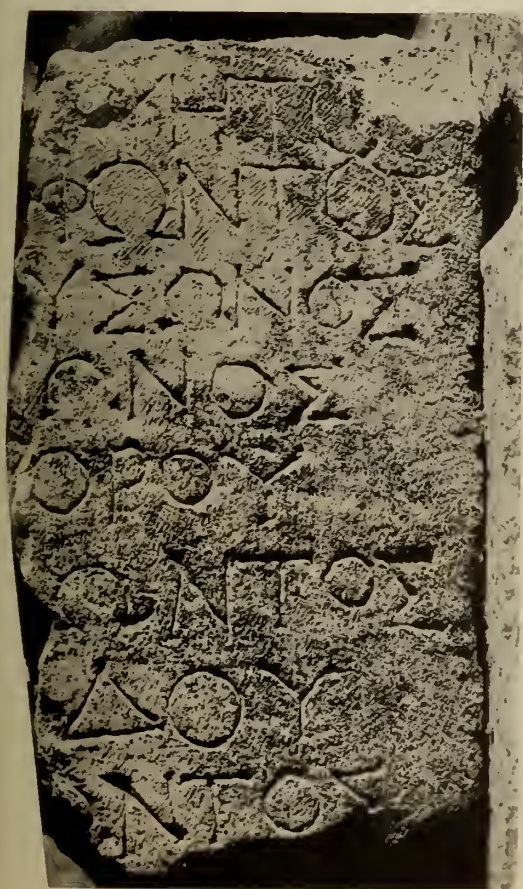 ΝΤΟ
ΦΩΝΤΟΣ
ΥΣΩΝΟΣ
ΩΝΟΣ
ΟΡΟΥ
ΩΝΤΟΣ
ΔΟΥ
ΝΤΟΣ